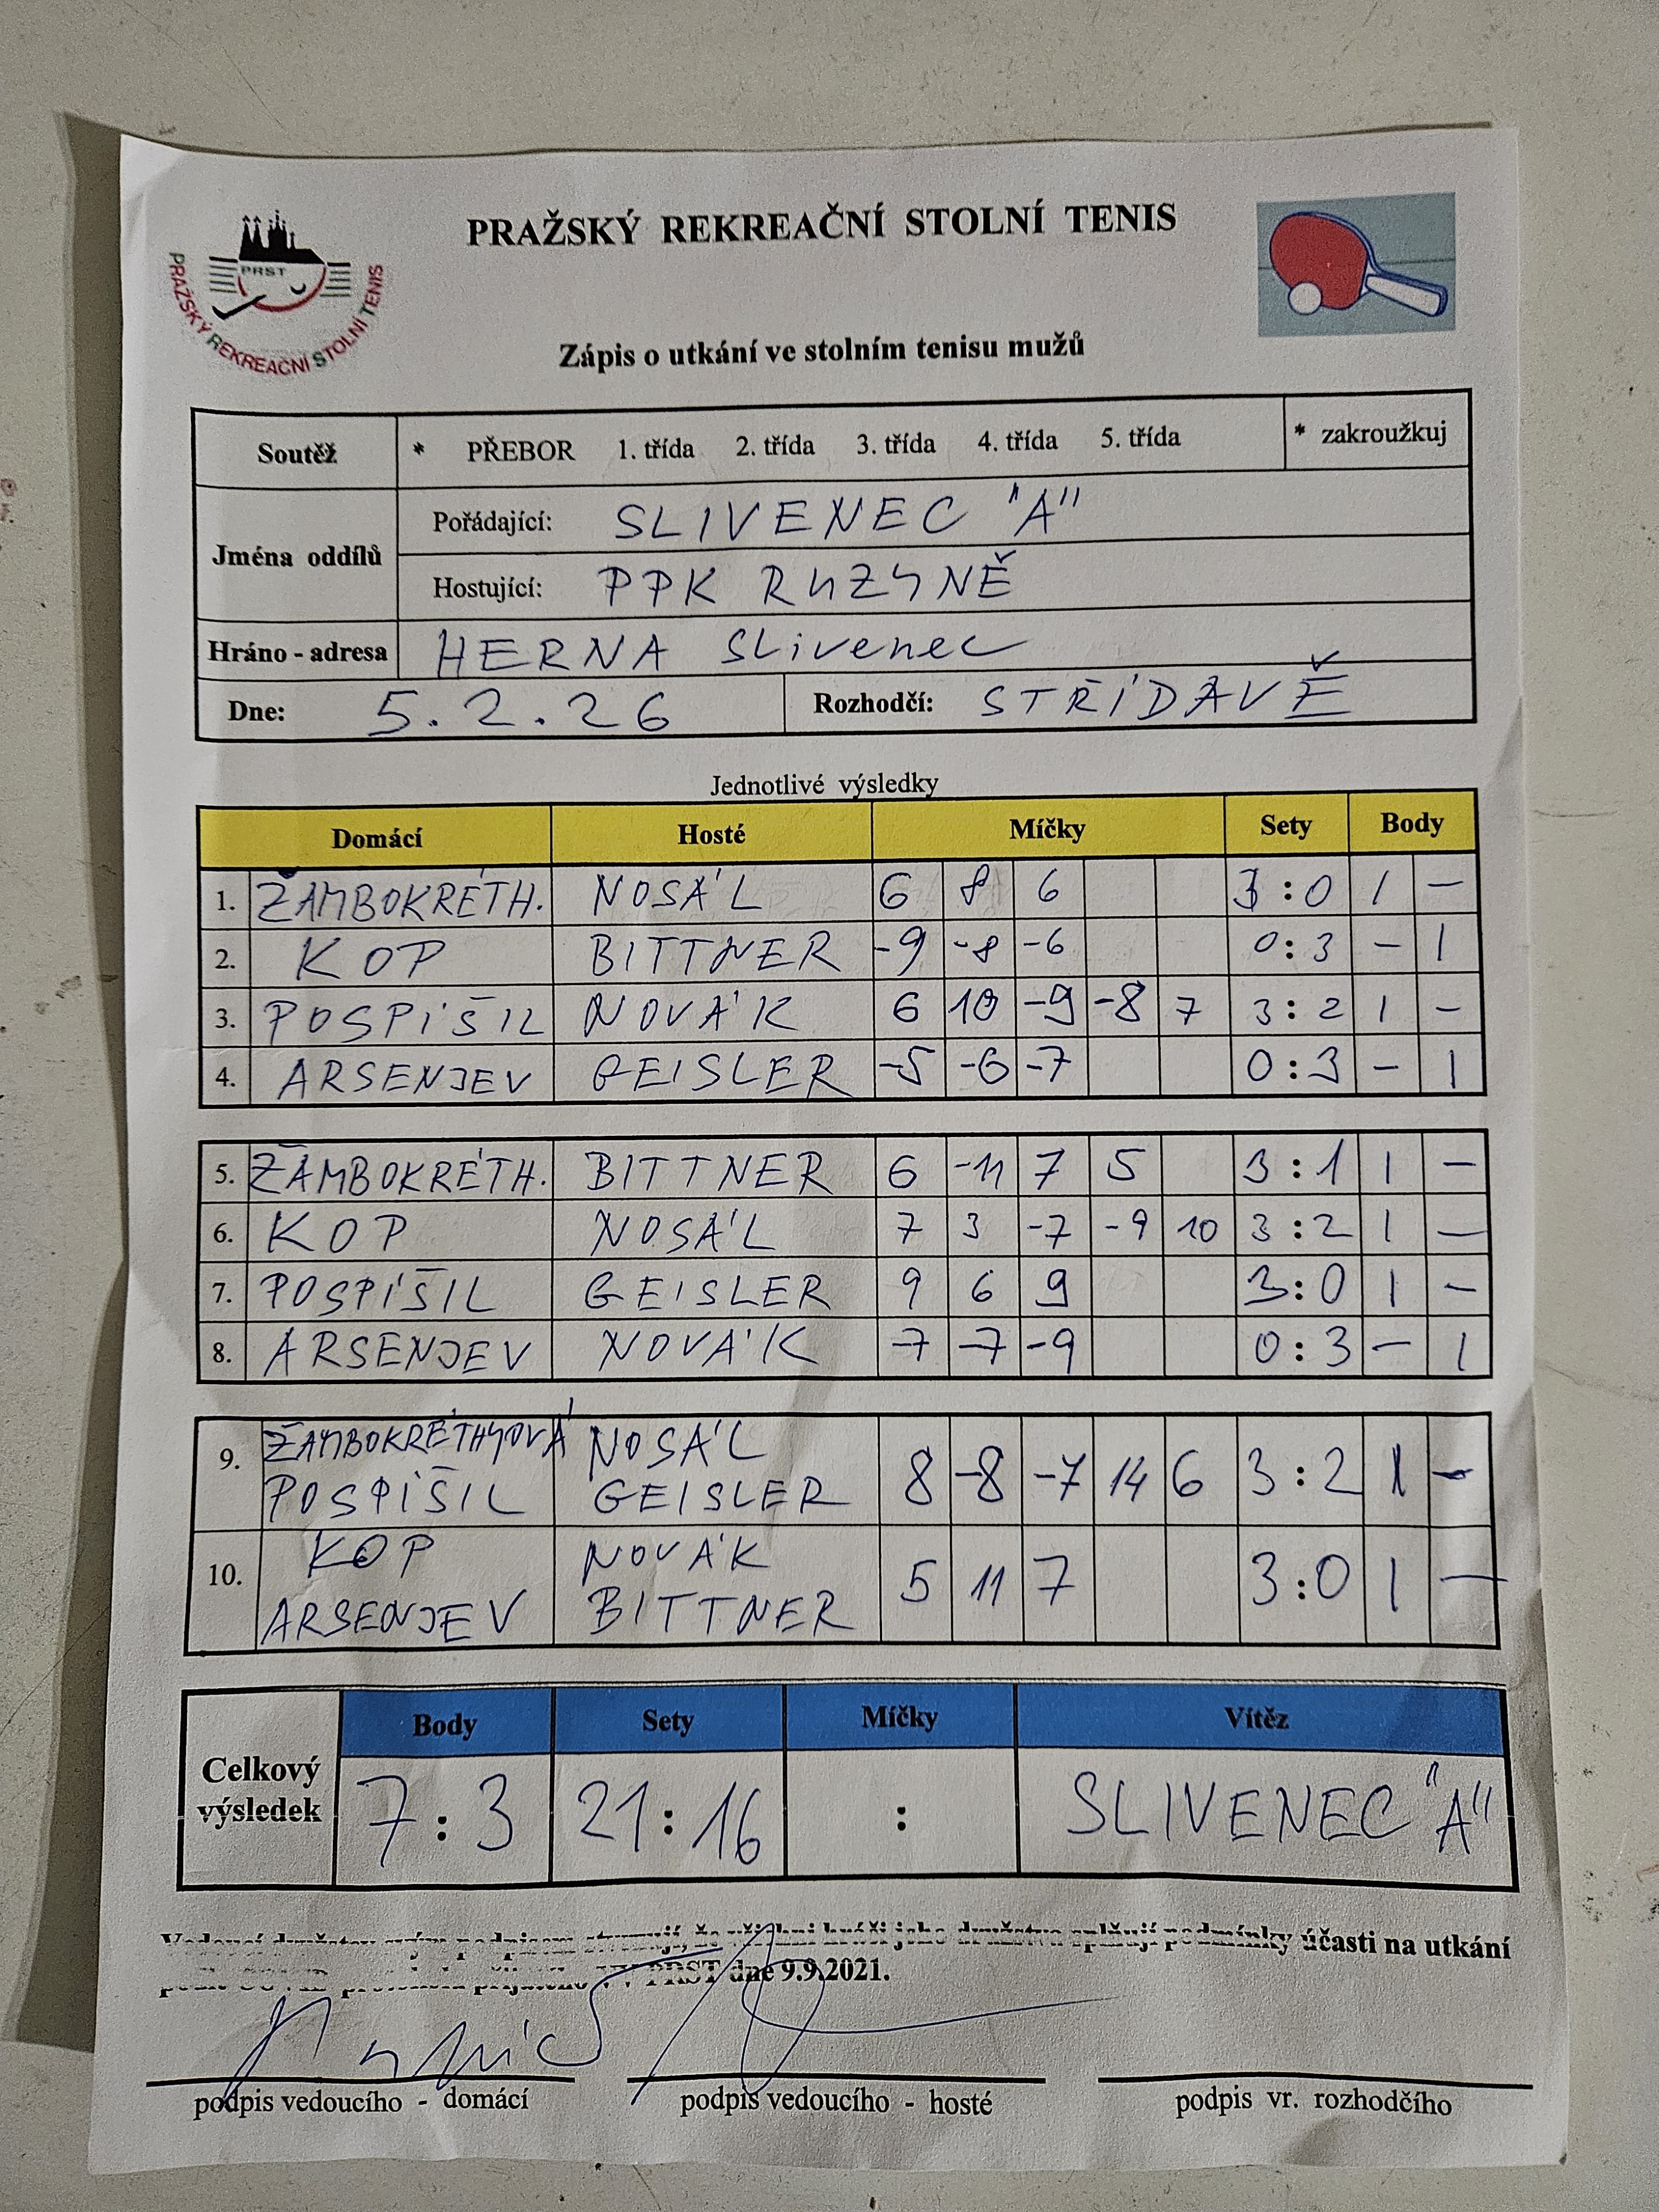 PRAŽSKÝ REKREAČNÍ STOLNÍ TENIS
PRST
PRAŽSKÝ REKREAČNÍ STOLNÍ TENIS
Zápis o utkání ve stolním tenisu mužů
Soutěž * PŘEBOR 1. třída 2. třída 3. třída 4. třída 5. třída * zakroužkuj
Jména oddílů
Pořádající: SLIVENEC "A"
Hostující: PPK RUZYNĚ
Hráno - adresa HERNA Slivenec
Dne: 5.2.26 Rozhodčí: STŘÍDAVĚ
Jednotlivé výsledky
Domácí Hosté Míčky Sety Body
1. ŽAMBOKRÉTH. NOSÁL 6 8 6 3:0 1 -
2. KOP BITTNER -9 -8 -6 0:3 - 1
3. POSPÍŠIL NOVÁK 6 10 -9 -8 7 3:2 1 -
4. ARSENJEV GEISLER -5 -6 -7 0:3 - 1
5. ŽAMBOKRÉTH. BITTNER 6 -11 7 5 3:1 1 -
6. KOP NOSÁL 7 3 -7 -9 10 3:2 1 -
7. POSPÍŠIL GEISLER 9 6 9 3:0 1 -
8. ARSENJEV NOVÁK -7 -7 -9 0:3 - 1
ŽAMBOKRÉTHYOVÁ NOSÁL
9. 8 -8 -7 14 6 3:2 1 -
POSPÍŠIL GEISLER
KOP NOVÁK
10. 5 11 7 3:0 1 -
ARSENJEV BITTNER
Body Sety Míčky Vítěz
Celkový výsledek 7:3 21:16 : SLIVENEC "A"
Vedoucí družstev svým podpisem stvrzují, že všichni hráči jeho družstva splňují podmínky účasti na utkání
podle COVID protokolu přijatého VV PRST dne 9.9.2021.
podpis vedoucího - domácí podpis vedoucího - hosté podpis vr. rozhodčího